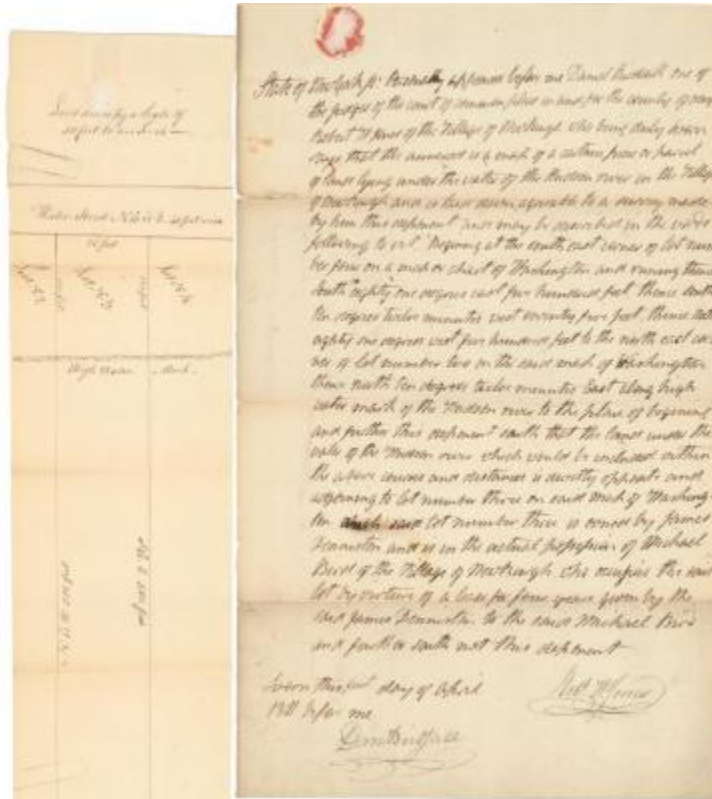 Laid down by a Scale of
50 feet to an Inch
Water Street
75 feet
Lot No 2
Lot No 3
Lot No 4
High Water Mark
State of New York ss. Personally appeared before me Daniel Birdsall one of
the judges of the court of common pleas in and for the county of
Robert of the Village of Newburgh who being duly sworn
says that the annexed is a map of a certain piece or parcel
of land lying under the water of the Hudson river in the Village
of Newburgh and is laid down agreeable to a survey made
by him this deponent and may be described in the words
following to wit Begining at the south east corner of lot num
ber four on a map or chart of Washington and running thence
South eighty one degrees east five hundred feet thence south
ten degrees twelve minutes west seventy five feet thence
eighty one degrees west five hundred feet to the north east cor
ner of lot number two on the said map of Washington
thence north ten degrees twelve minutes East along high
water mark of the Hudson river to the place of begining
and further this deponent saith that the land under the
water of the Hudson river which would be included within
the above courses and distances is directly opposite and
adjoining to lot number three on said map of Washing
ton which said lot number three is owned by James
Denniston and is in the actual possession of Michael
Bird of the Village of Newburgh who occupies the said
lot by virtue of a lease for four years given by the
said James Denniston to the said Michael Bird
and further saith not this deponent
Sworn this day of April
before me
Danl Birdsall